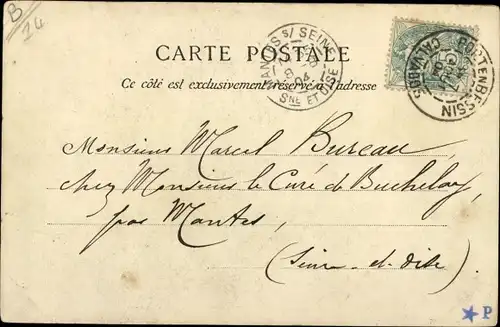 B
74
CARTE POSTALE
Ce côté est exclusivement réservé à l'adresse
MANTES S/ SEINE
8
04
SNE ET OISE
PORT EN BESSIN
CALVADOS
Monsieur Marcel Bureau,
chez Monsieur le Curé de Buchelay,
par Mantes,
(Seine-et-Oise)
P